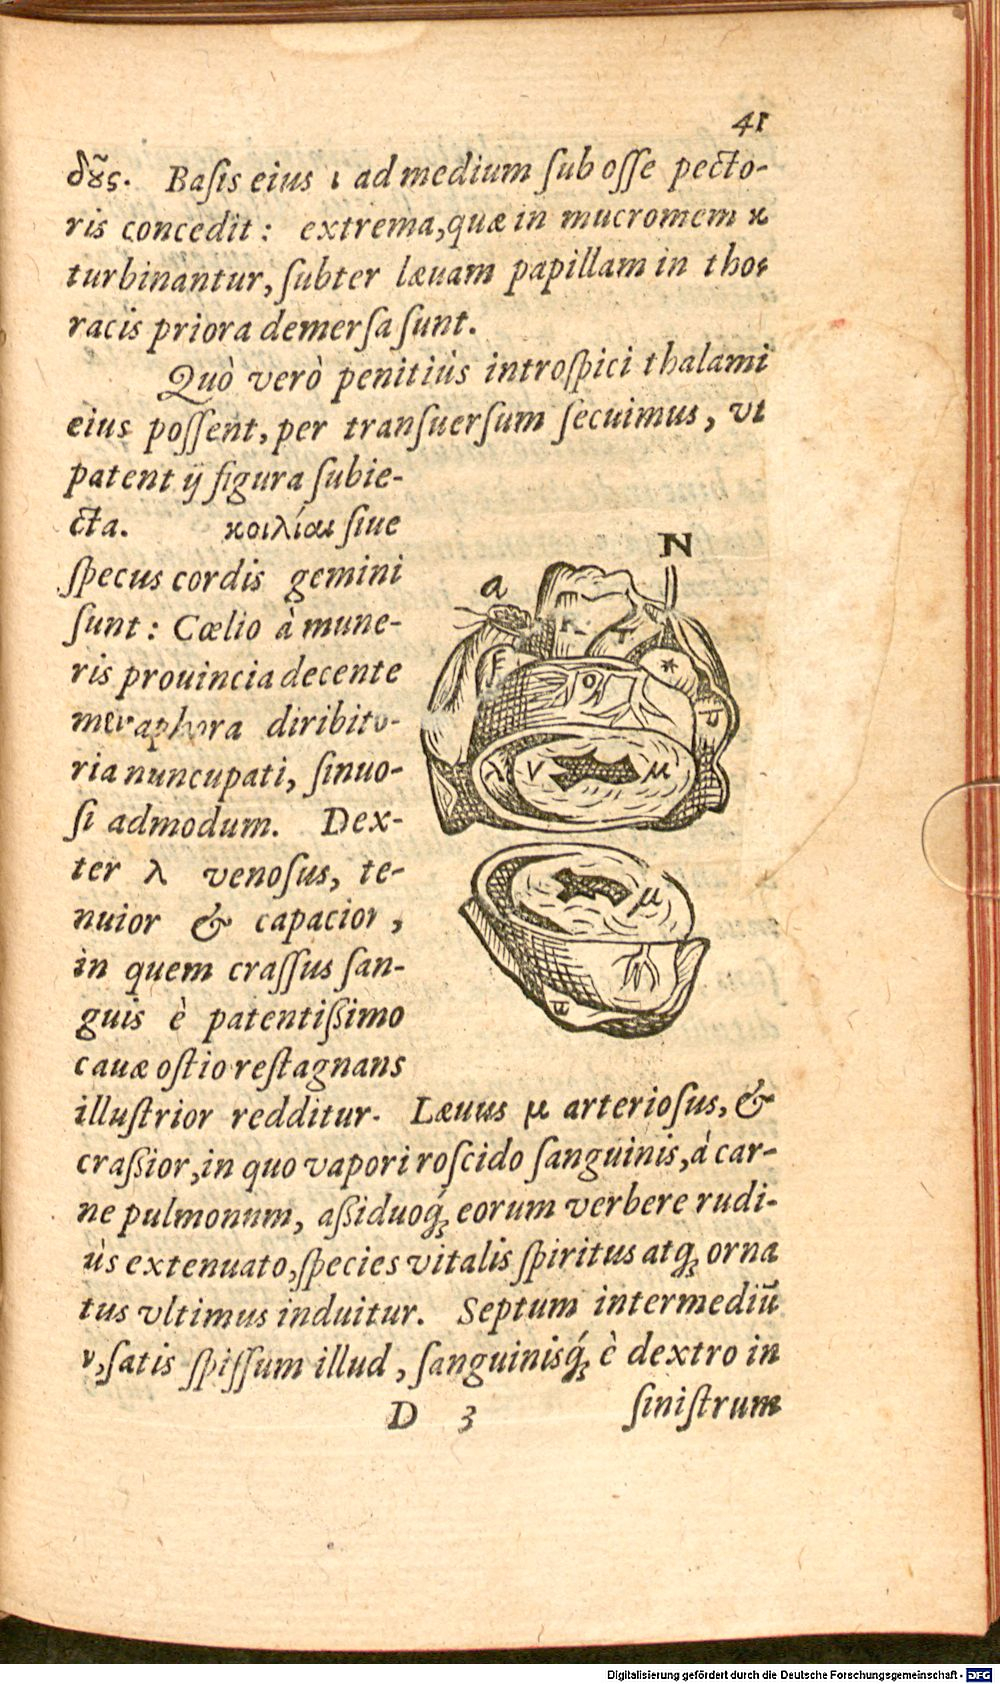 41
δοῦς. Basis eius ι ad medium sub osse pecto-
ris concedit: extrema, quæ in mucromem κ
turbinantur, subter læuam papillam in tho-
racis priora demersa sunt.
Quò verò penitiùs introspici thalami
eius possent, per transuersum secuimus, vt
patent ij figura subie-
cta. κοιλίαι siue
specus cordis gemini
sunt: Cœlio à mune-
ris prouincia decente
metaphora diribito-
ria nuncupati, sinuo-
si admodum. Dex-
ter λ venosus, te-
nuior & capacior,
in quem crassus san-
guis è patentißimo
cauæ ostio restagnans
illustrior redditur. Læuus μ arteriosus, &
craßior, in quo vapori roscido sanguinis, à car-
ne pulmonum, aßiduoq́; eorum verbere rudi-
ùs extenuato, species vitalis spiritus atq; orna
tus vltimus induitur. Septum intermediũ
ν, satis spissum illud, sanguinisq́; è dextro in
D 3 sinistrum
N
a
F
o
*
ν μ
μ
Digitalisierung gefördert durch die Deutsche Forschungsgemeinschaft - DFG